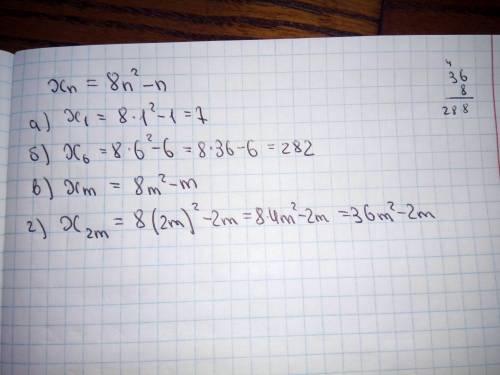 xₙ = 8n² - n
а) x₁ = 8·1² - 1 = 7
б) x₆ = 8·6² - 6 = 8·36 - 6 = 282
в) xₘ = 8m² - m
г) x₂ₘ = 8(2m)² - 2m = 8·4m² - 2m = 36m² - 2m
4
36
8
288